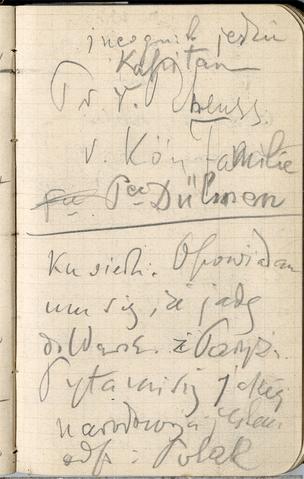 incognito jedzie
Kapitan
Pr. Y. Preuss
v. Kön Familie
Dülmen
Ku siedz. Opowiadam
mu się, że jadę
do Warsz. z Paryża.
Pyta mnie jakiej
narodowej jestem
odp: Polak